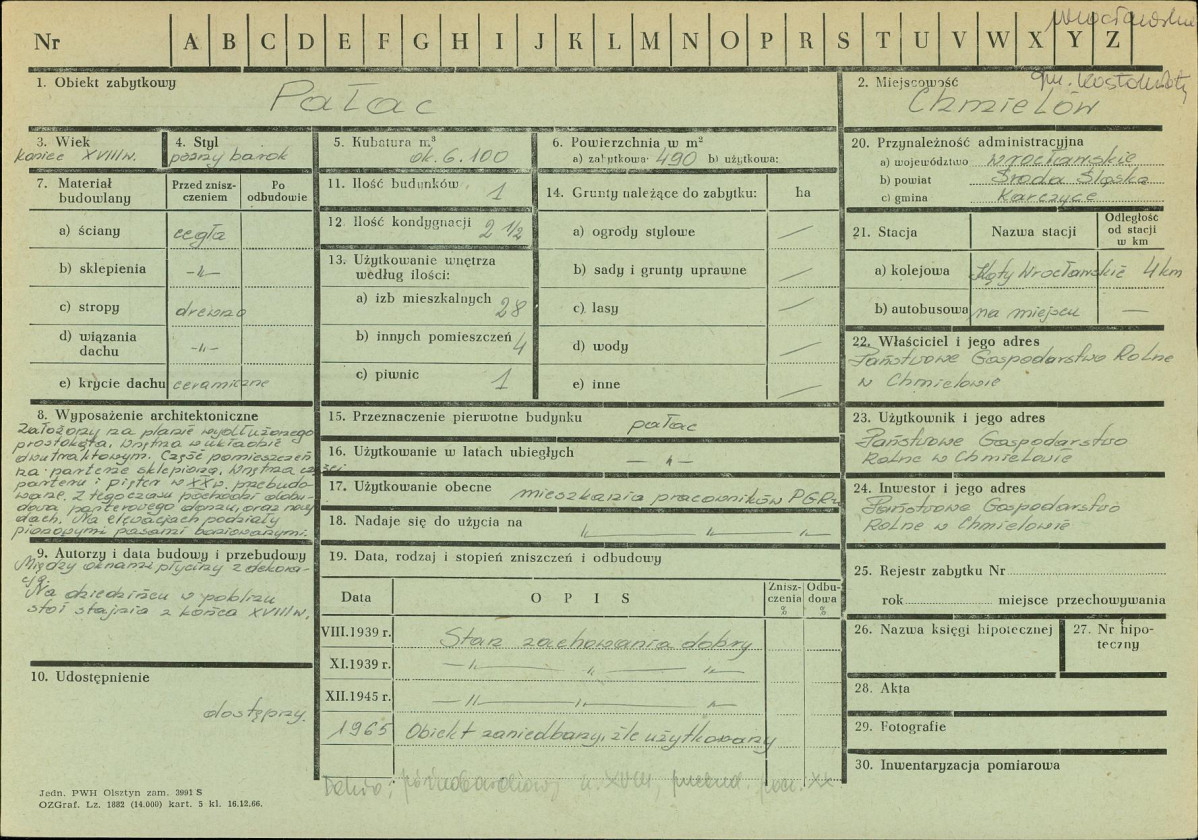 wrocławskie
Nr A B C D E F G H I J K L M N O P R S T U V W X Y Z
1. Obiekt zabytkowy
Pałac
2. Miejscowość
gm. Kostomłoty
Chmielów
3. Wiek
koniec XVIII w.
4. Styl
późny barok
5. Kubatura m.³
ok. 6.100
6. Powierzchnia w m²
a) zabytkowa 490 b) użytkowa:
7. Materiał budowlany
Przed zniszczeniem
Po odbudowie
a) ściany cegła
b) sklepienia -"-
c) stropy drewno
d) wiązania dachu -"-
e) krycie dachu ceramiczne
8. Wyposażenie architektoniczne
Założony na planie wydłużonego
prostokąta. Wnętrza w układzie
dwutraktowym. Część pomieszczeń
na parterze sklepiona. Wnętrza części
parteru i pięter w XX w. przebudo-
wane. Z tego czasu pochodzi dobu-
dowa parterowego domu, oraz nowy
dach. Na elewacjach podziały
pionowymi pasami boniowanymi.
9. Autorzy i data budowy i przebudowy
Między oknami płyciny z dekora-
cją.
Na dziedzińcu w pobliżu
stoi stajnia z końca XVIII w.
10. Udostępnienie
dostępny.
11. Ilość budynków 1
12. Ilość kondygnacji 2 1/2
13. Użytkowanie wnętrza
według ilości:
a) izb mieszkalnych 28
b) innych pomieszczeń 4
c) piwnic 1
14. Grunty należące do zabytku: ha
a) ogrody stylowe —
b) sady i grunty uprawne —
c) lasy —
d) wody —
e) inne —
15. Przeznaczenie pierwotne budynku pałac
16. Użytkowanie w latach ubiegłych — " —
17. Użytkowanie obecne mieszkania pracowników PGR-u
18. Nadaje się do użycia na — " —
19. Data, rodzaj i stopień zniszczeń i odbudowy
Data
O P I S
Zniszczenia %
Odbudowa %
VIII.1939 r. Stan zachowania dobry
XI.1939 r. — " — " — " —
XII.1945 r. — " — " — " —
1965 Obiekt zaniedbany, źle użytkowany
20. Przynależność administracyjna
a) województwo wrocławskie
b) powiat Środa Śląska
c) gmina Karczyce
21. Stacja
Nazwa stacji
Odległość od stacji w km
a) kolejowa Kąty Wrocławskie 4 km
b) autobusowa na miejscu —
22. Właściciel i jego adres
Państwowe Gospodarstwo Rolne
w Chmielowie
23. Użytkownik i jego adres
Państwowe Gospodarstwo
Rolne w Chmielowie
24. Inwestor i jego adres
Państwowe Gospodarstwo
Rolne w Chmielowie
25. Rejestr zabytku Nr
rok miejsce przechowywania
26. Nazwa księgi hipotecznej
27. Nr hipoteczny
28. Akta
29. Fotografie
30. Inwentaryzacja pomiarowa
XVIII, przebud. pocz. XX
Jedn. PWH Olsztyn zam. 3991 S
OZGraf. Lz. 1882 (14.000) kart. 5 kl. 16.12.66.